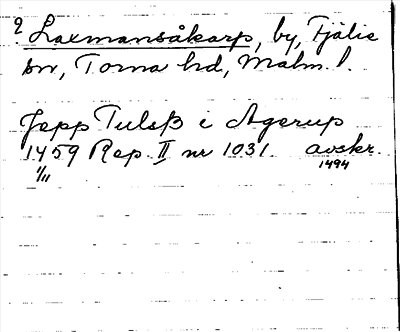 ? Laxmansåkarp, by, Fjälie
sn, Torna hd, Malm. l.
Jepp Tulsß i Agerup
1459 Rep. II nr 1031. avskr.
1/11 1494